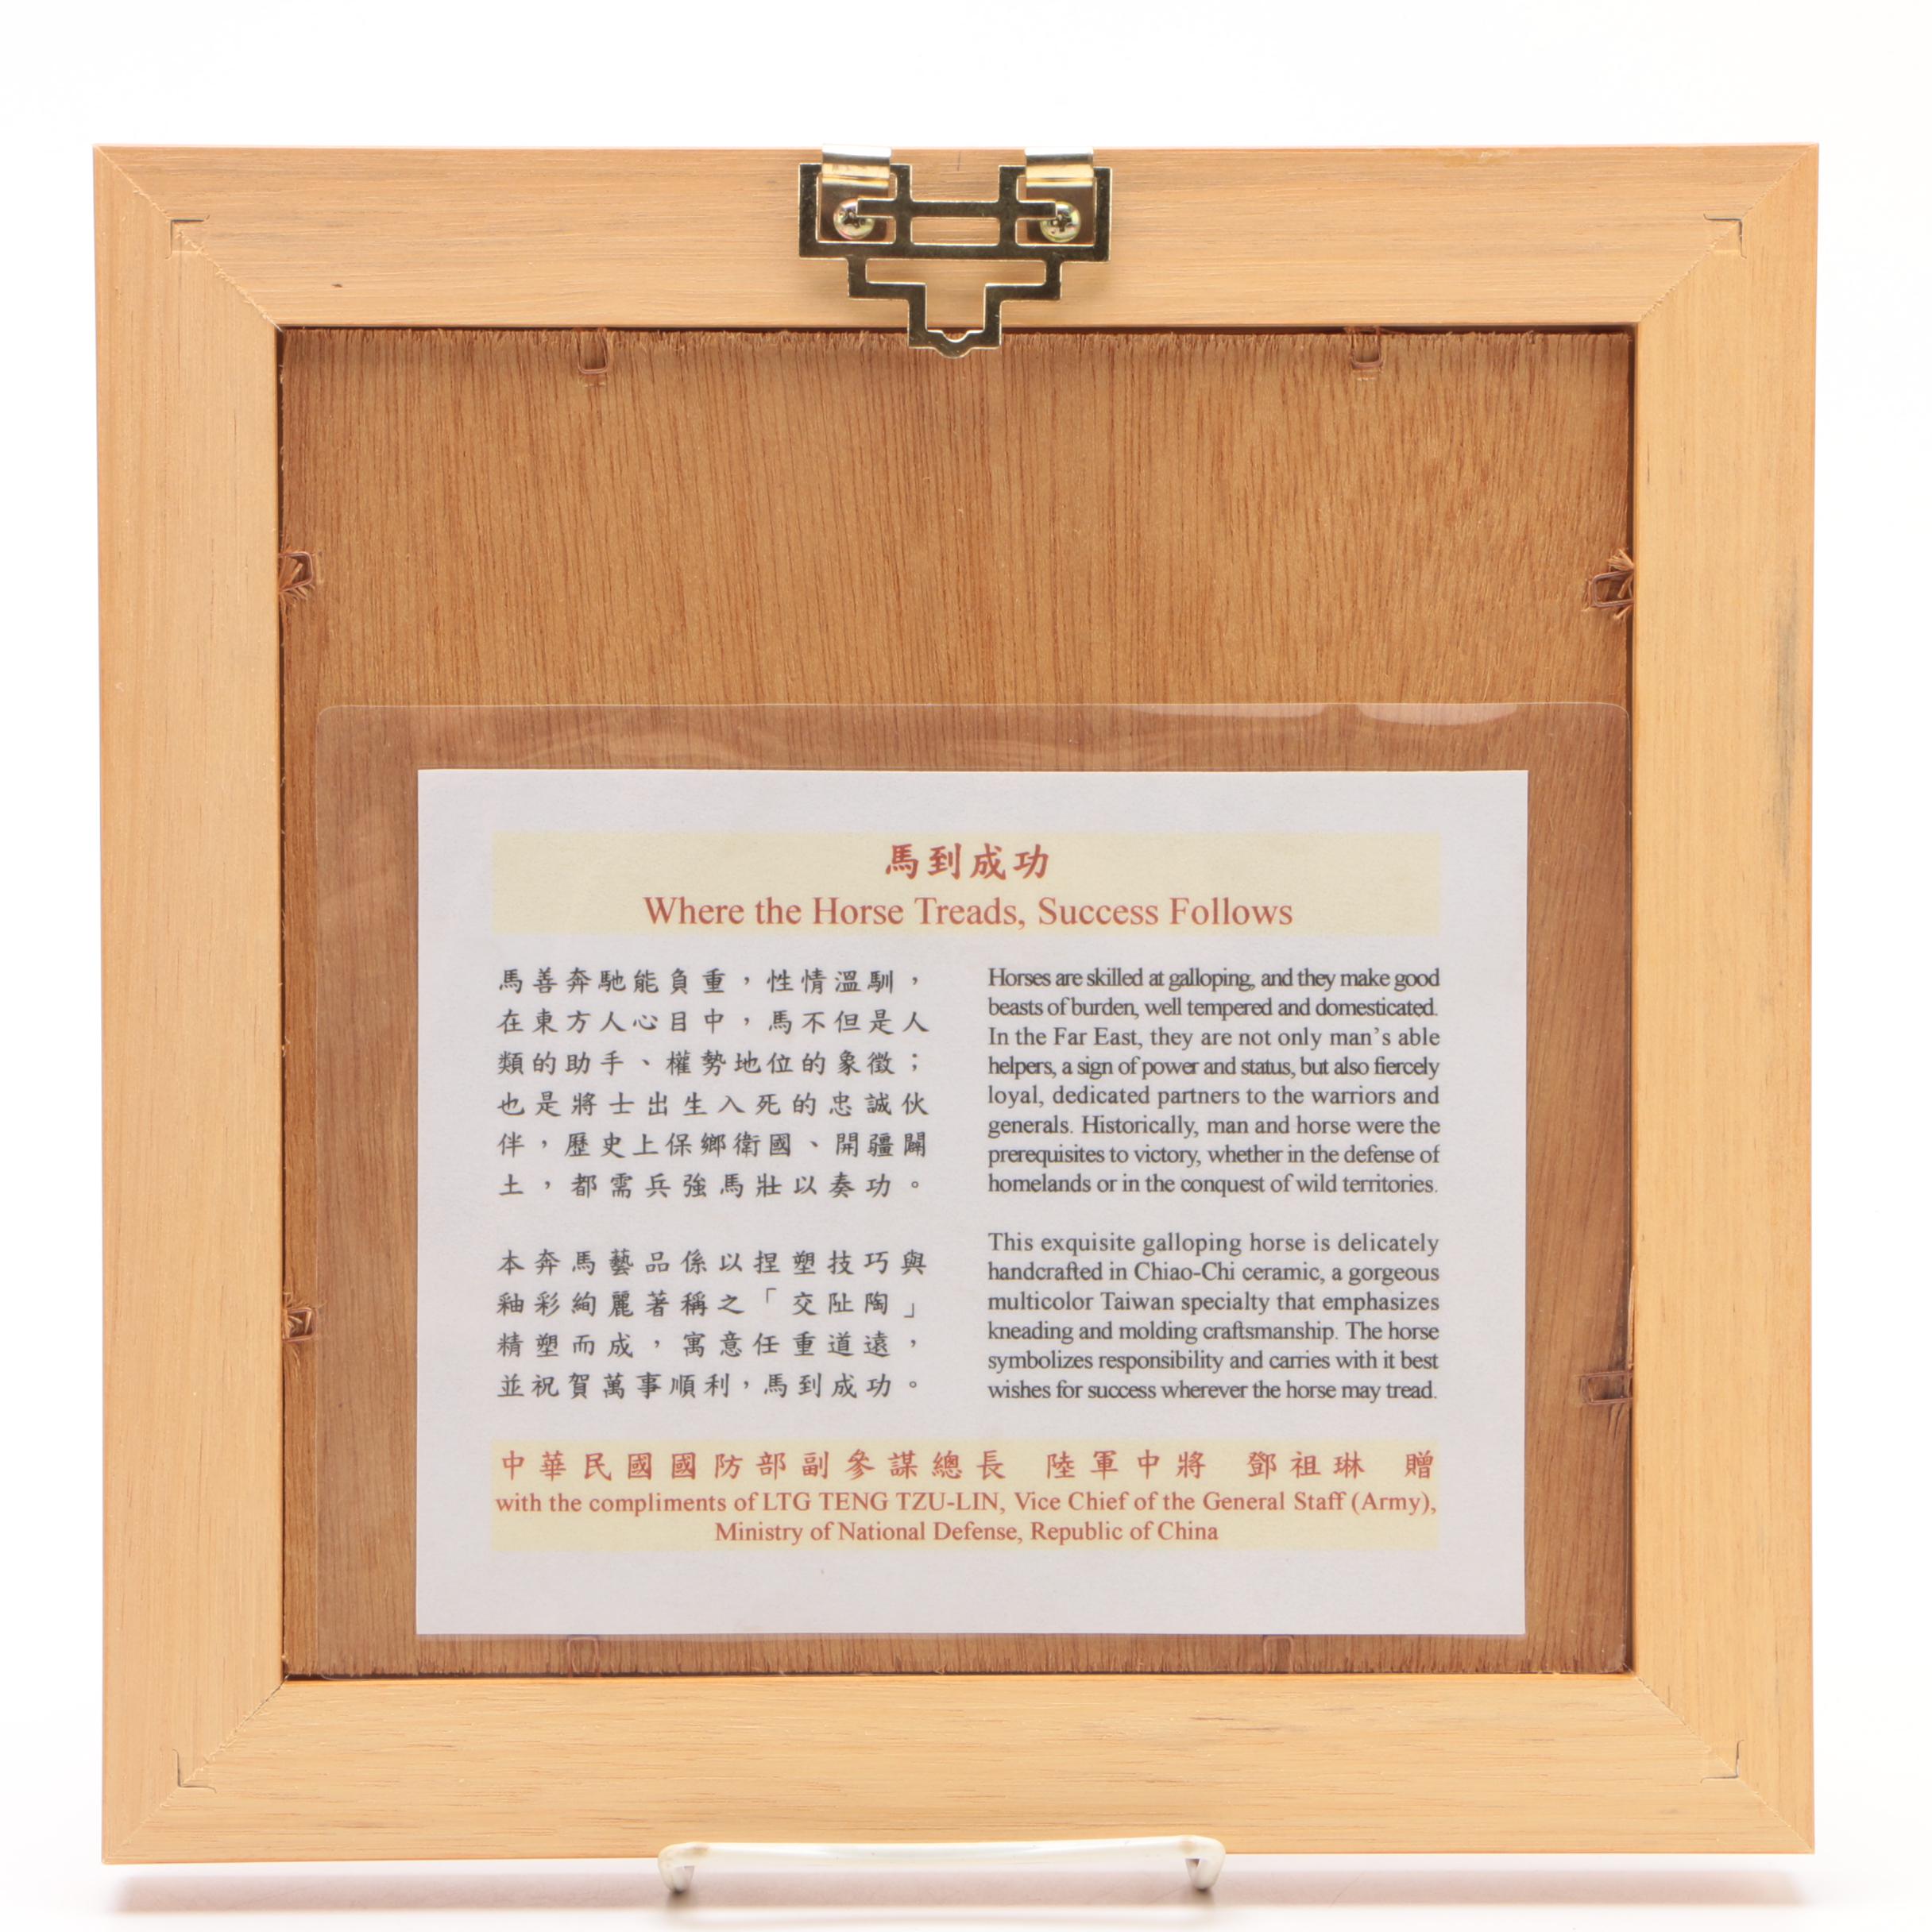 馬到成功
Where the Horse Treads, Success Follows
馬善奔馳能負重，性情溫馴，
在東方人心目中，馬不但是人
類的助手、權勢地位的象徵；
也是將士出生入死的忠誠伙
伴，歷史上保鄉衛國、開疆闢
土，都需兵強馬壯以奏功。
本奔馬藝品係以捏塑技巧與
釉彩絢麗著稱之「交趾陶」
精塑而成，寓意任重道遠，
並祝賀萬事順利，馬到成功。
Horses are skilled at galloping, and they make good
beasts of burden, well tempered and domesticated.
In the Far East, they are not only man's able
helpers, a sign of power and status, but also fiercely
loyal, dedicated partners to the warriors and
generals. Historically, man and horse were the
prerequisites to victory, whether in the defense of
homelands or in the conquest of wild territories.
This exquisite galloping horse is delicately
handcrafted in Chiao-Chi ceramic, a gorgeous
multicolor Taiwan specialty that emphasizes
kneading and molding craftsmanship. The horse
symbolizes responsibility and carries with it best
wishes for success wherever the horse may tread.
中華民國國防部副參謀總長 陸軍中將 鄧祖琳 贈
with the compliments of LTG TENG TZU-LIN, Vice Chief of the General Staff (Army),
Ministry of National Defense, Republic of China